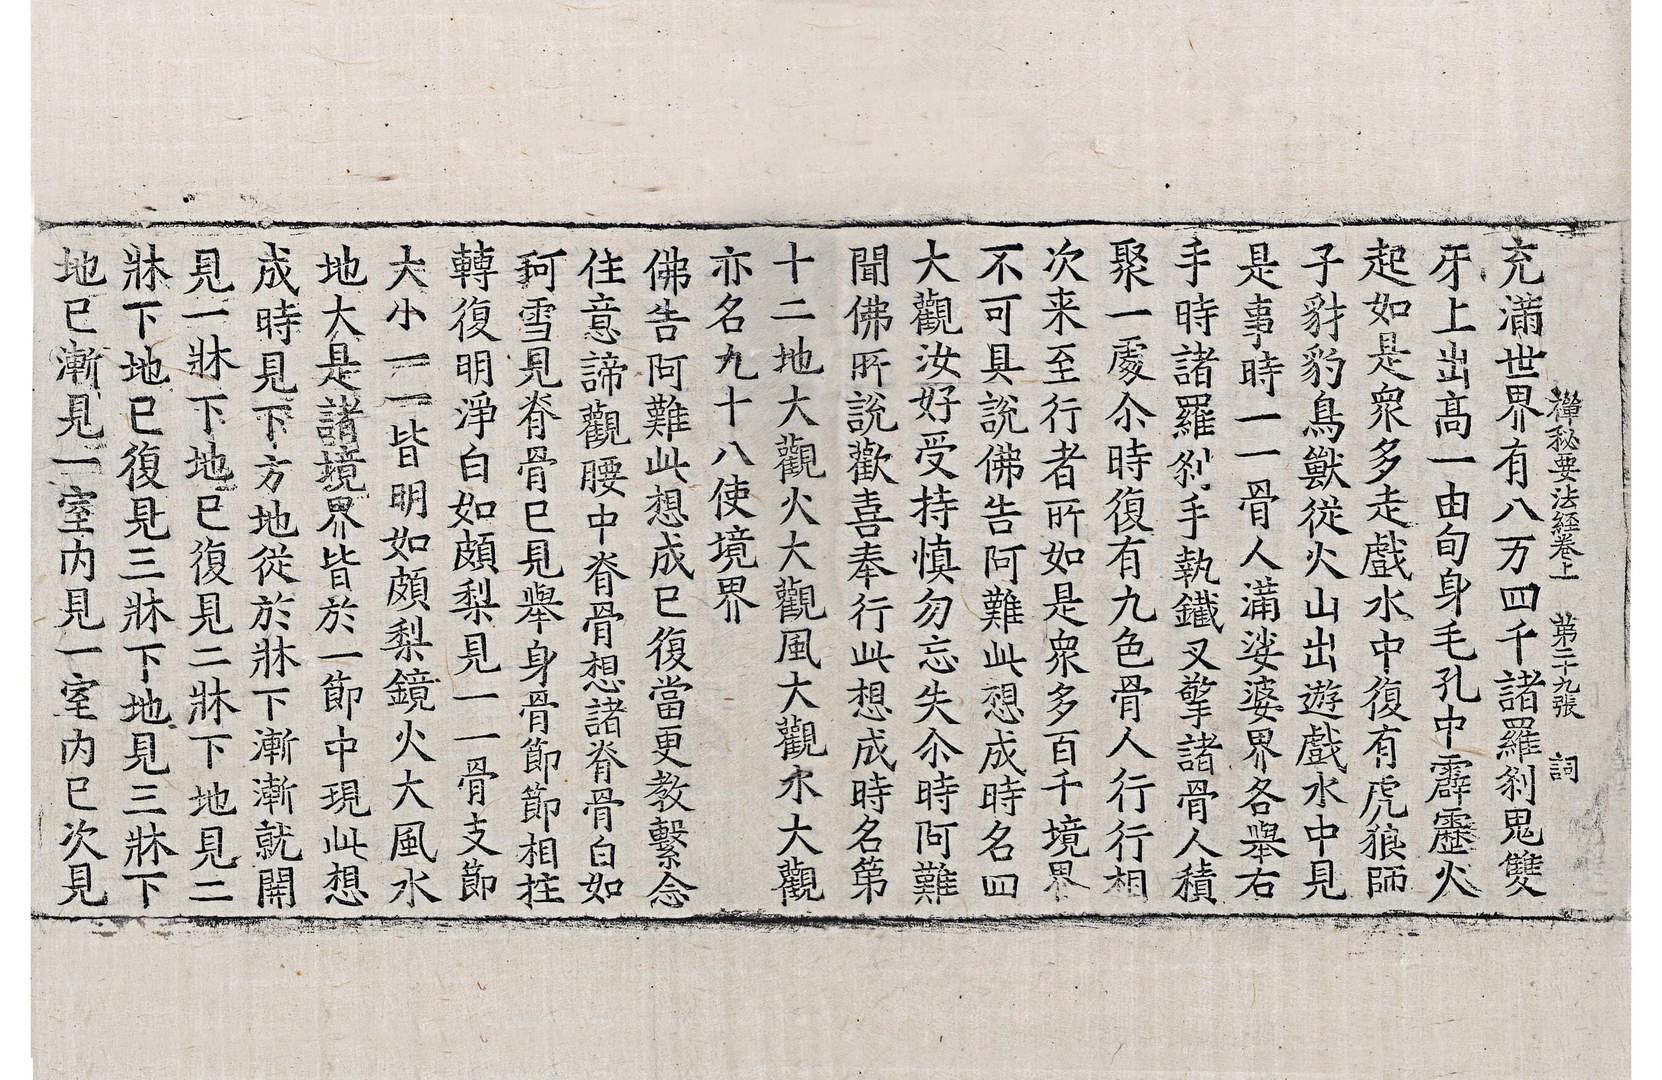 禪秘要法經卷上 第二十九張 詞
充滿世界有八万四千諸羅刹鬼雙
牙上出高一由旬身毛孔中霹靂火
起如是衆多走戲水中復有虎狼師
子豺豹鳥獸從火山出遊戲水中見
是事時一一骨人滿娑婆界各舉右
手時諸羅刹手執鐵叉擎諸骨人積
聚一處尒時復有九色骨人行行相
次来至行者所如是衆多百千境界
不可具說佛告阿難此想成時名四
大觀汝好受持慎勿忘失尒時阿難
聞佛所說歡喜奉行此想成時名第
十二地大觀火大觀風大觀水大觀
亦名九十八使境界
佛告阿難此想成已復當更教繫念
住意諦觀腰中脊骨想諸脊骨白如
珂雪見脊骨已見舉身骨節節相拄
轉復明淨白如頗梨見一一骨支節
大小一一皆明如頗梨鏡火大風水
地大是諸境界皆於一節中現此想
成時見下方地從於牀下漸漸就開
見一牀下地已復見二牀下地見二
牀下地已復見三牀下地見三牀下
地已漸見一室內見一室內已次見